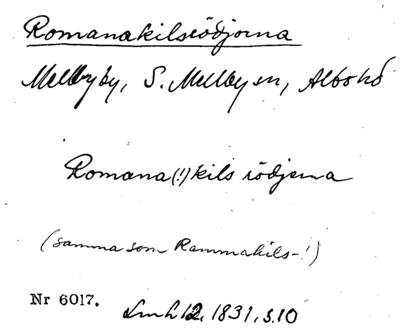 Romanakilsrödjorna
Mellby by, S. Mellby sn, Albo hd
Romana(!)kils rödjerna
(samma som Rammakils-!)
Nr 6017.
Lmh 12, 1831, s. 10